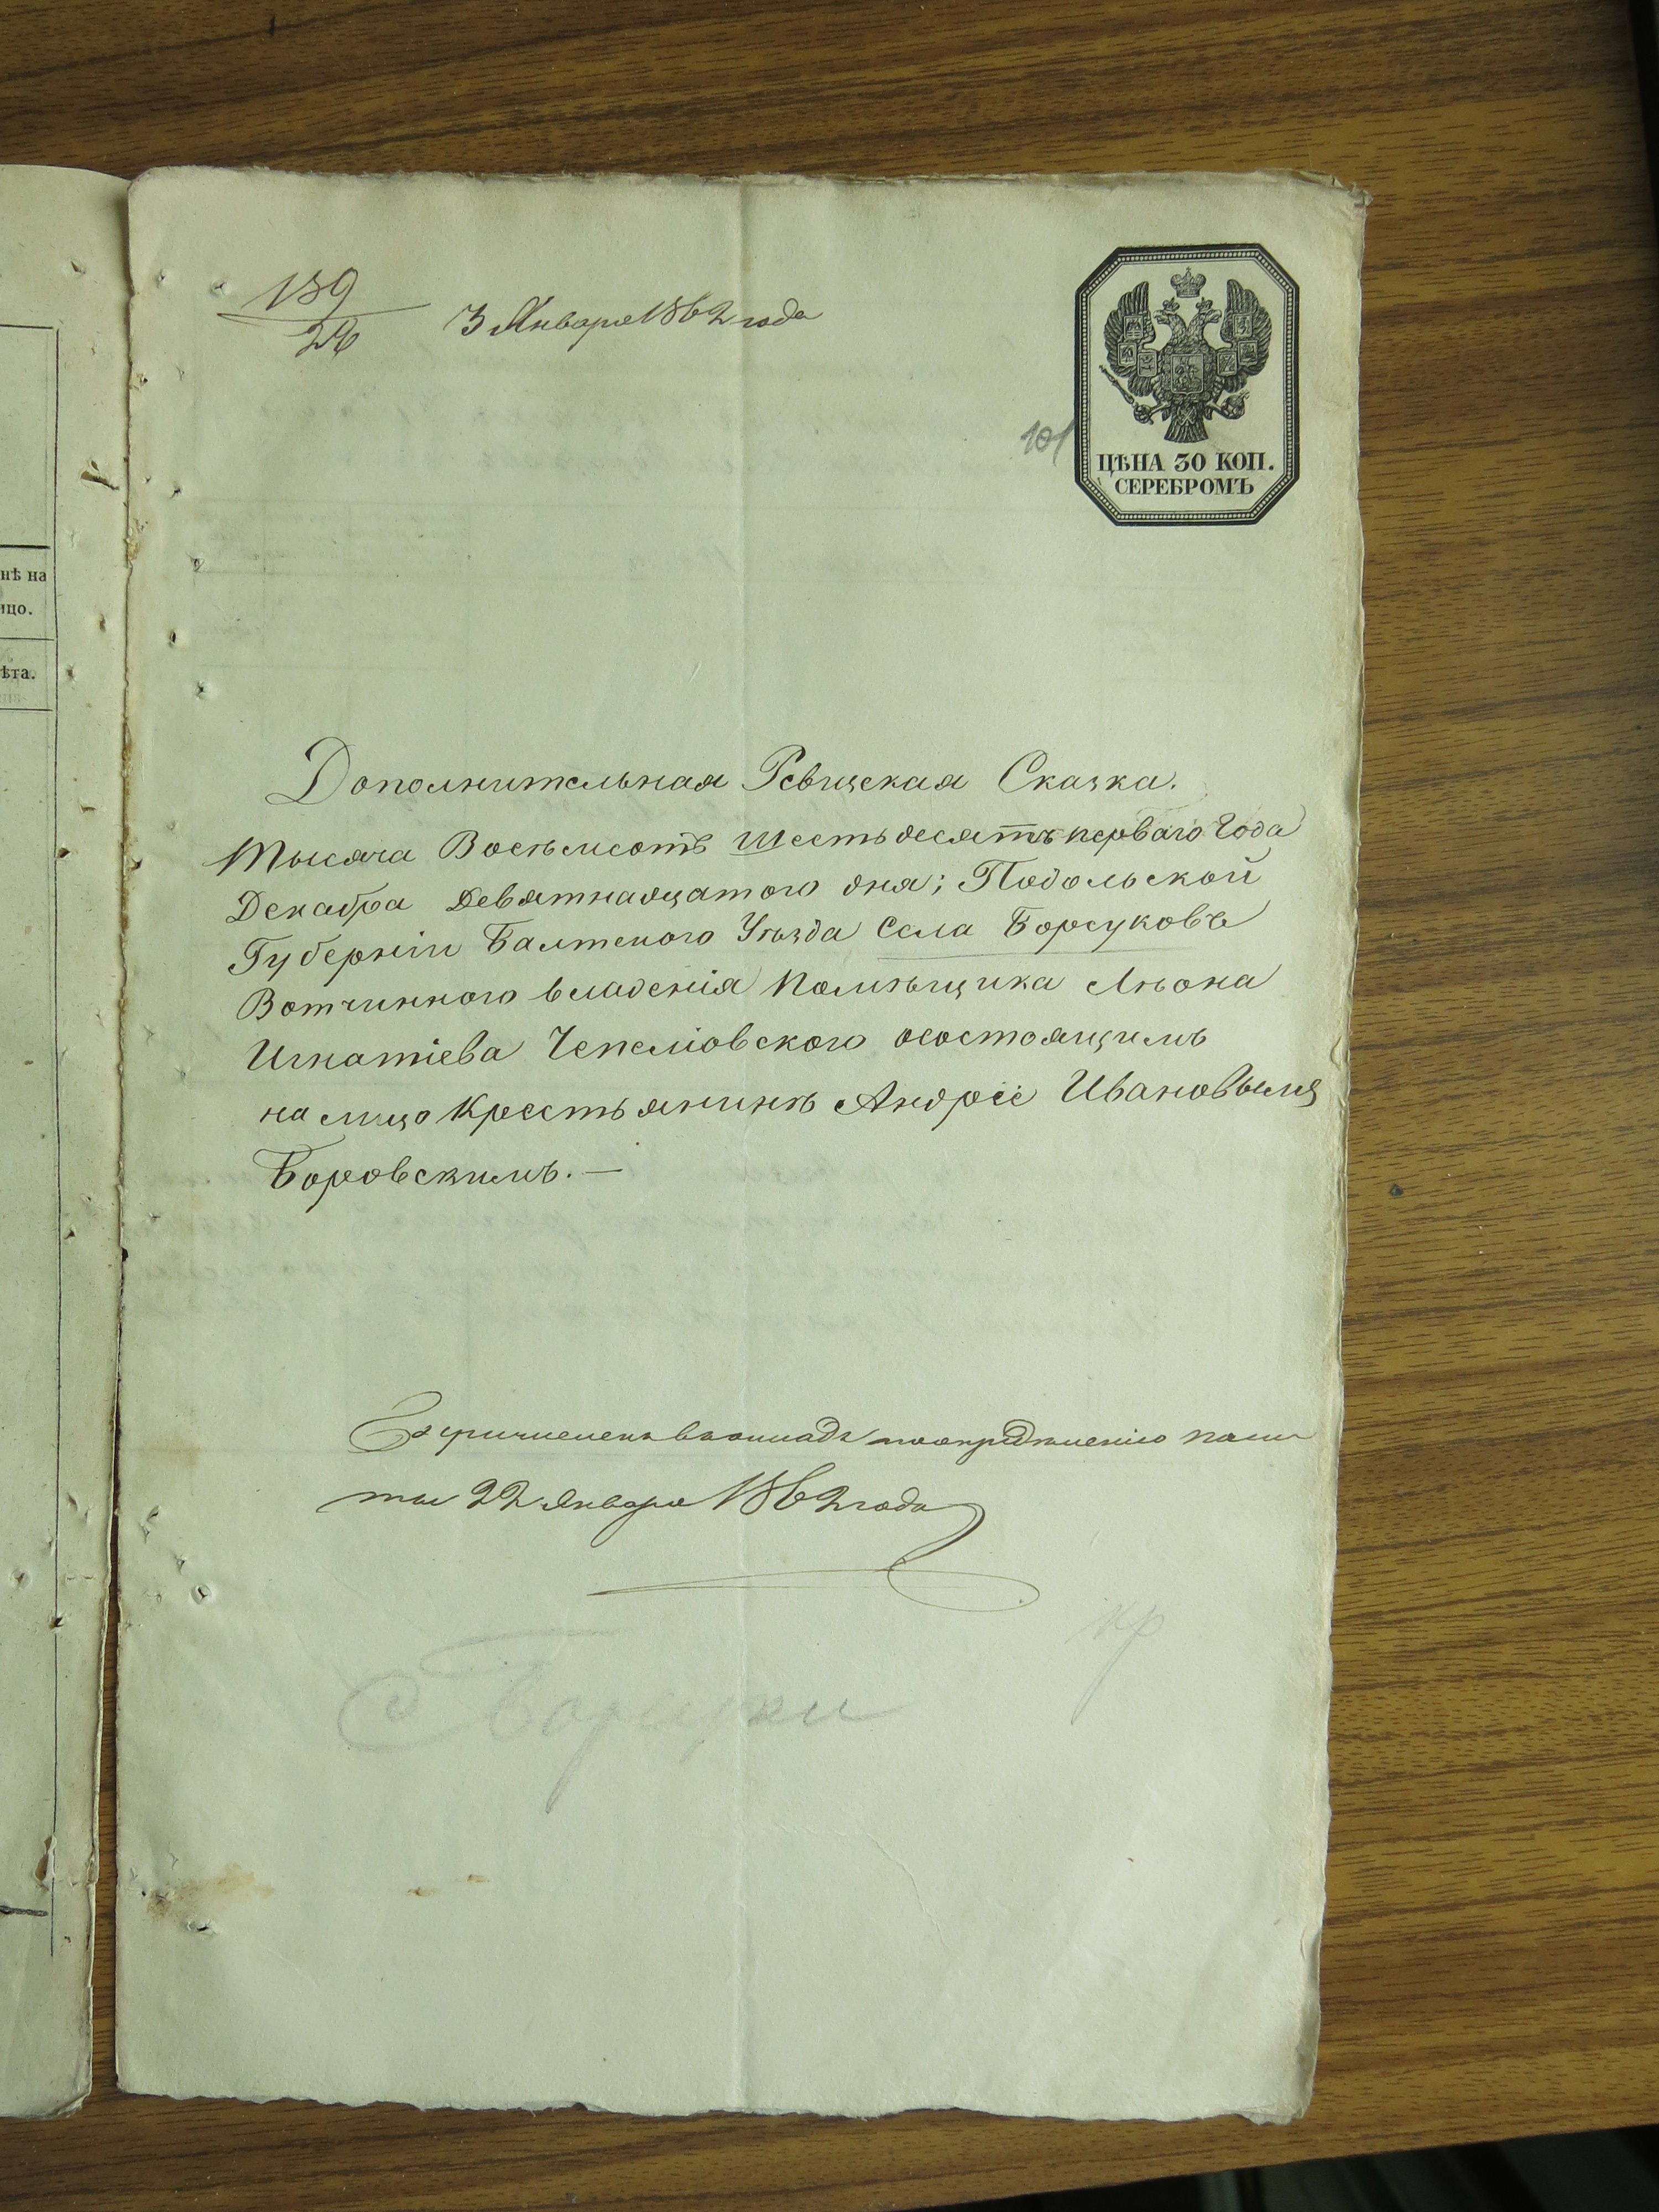 нѣ на
ицо.
ѣта.
189
24
3 Января 1862 года
101
ЦѢНА 30 КОП.
СЕРЕБРОМЪ
Дополнительная Ревизская Сказка.
Тысяча Восемьсотъ Шестьдесятъ перваго Года
Декабра Девятнадцатого дня; Подольской
Губерніи Балтского Уѣзда Села Борсуковъ
Вотчинного владенія Помѣщика Лѣона
Игнатіева Чепеліовского осостоящимъ
на лицо Крестьянинѣ Андрѣѣ Ивановымъ
Боровскимъ.—
въ окладъ по опредѣленію пала
ты 22 Января 1862 года
с Борсуки
кр